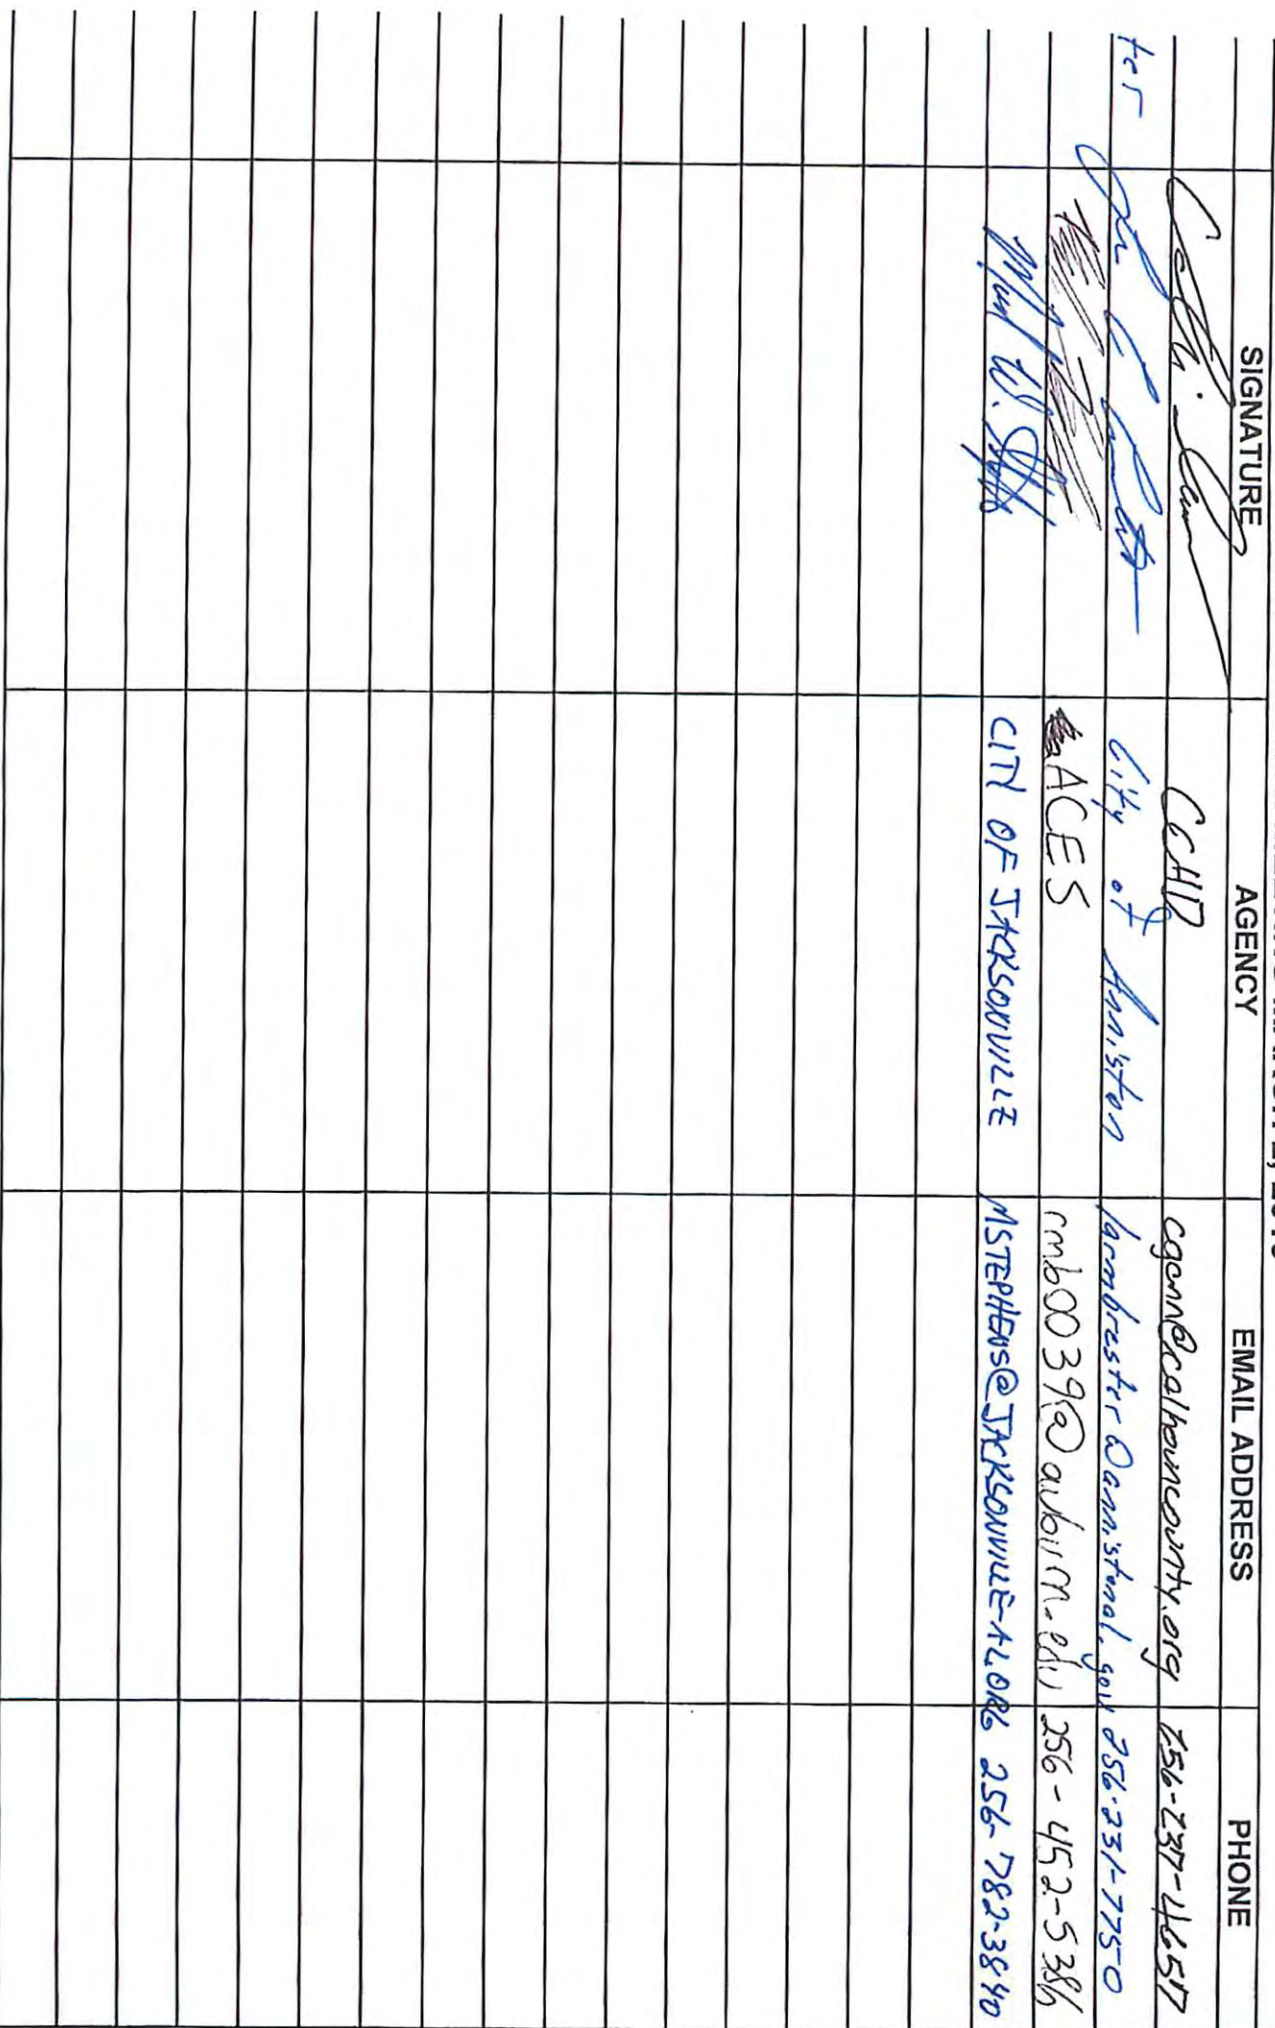 SIGNATURE AGENCY EMAIL ADDRESS PHONE
CCHD cgann@calhouncounty.org 256-237-4657
ter City of Anniston jarmbrester@annistonal.gov 256-231-7750
ACES rmb0039@auburn.edu 256-452-5386
CITY OF JACKSONVILLE MSTEPHENS@JACKSONVILLE-AL.ORG 256-782-3840